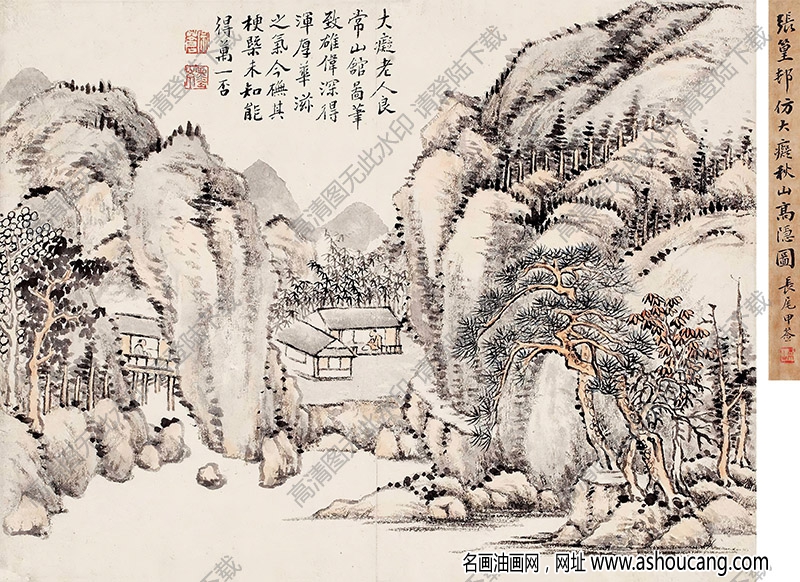 大癡老人良
常山館啚筆
致雄偉深得
渾厚華滋
之氣今橅其
梗槩未知能
得萬一否
張篁邨仿大癡秋山高隱圖
長尾甲簽
高清图无此水印 请登陆下载
名画油画网，网址 www.ashoucang.com